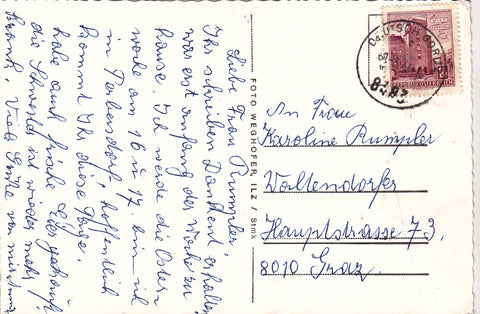 Liebe Frau Rumpler!
Ihr schreiben Dankend erhalten
war erst anfang der Woche zu
Haus. Ich werde die Ostern
wode am 16 u 17. bin ich
in Perbersdorf, hoffentlich
kommt Ihr diese Tage.
habe auch frische Eier gekauft
die Schwold ist wieder mehr
krank. Viele Grüße von
FOTO WEGHOFER, ILZ / Stmk
DEUTSCH GORITZ
8483
REPUBLIK ÖSTERREICH
An Frau
Karoline Rumpler
Waltendorfer
Hauptstrasse 73.
8010 Graz.